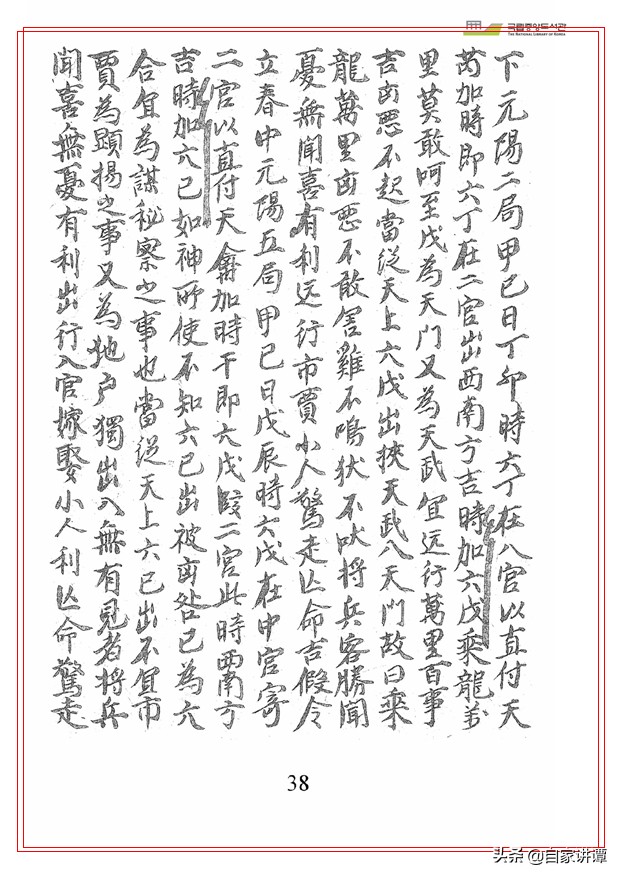 국립중앙도서관
THE NATIONAL LIBRARY OF KOREA
下元陽二局甲己日丁卯時六丁在八官以直付天
芮加時即六丁在二官出西南方吉時加六戊乘龍万
里莫敢呵至戊為天門又為天武宜远行萬里百事
吉凶恶不起當従天上六戊出挾天武入天門故曰乘
龍萬里凶恶不敢害雞不鳴犾不吠将兵客勝聞
憂無聞喜有利远行市賈小人驚走亡命吉假令
立春中元陽五局甲己日戊辰時六戊在中官寄
二官以直付天禽加時干即六戊臨二官此時西南方
吉時加六己如神所使不知六己出被凶咎己為六
合宜為謀秘宻之事也當従天上六己出不宜市
賈為顕揚之事又為地户獨出入無有見者将兵
聞喜無憂有利出行入官嫁娶小人利亡命驚走
38
头条 @自家讲谭